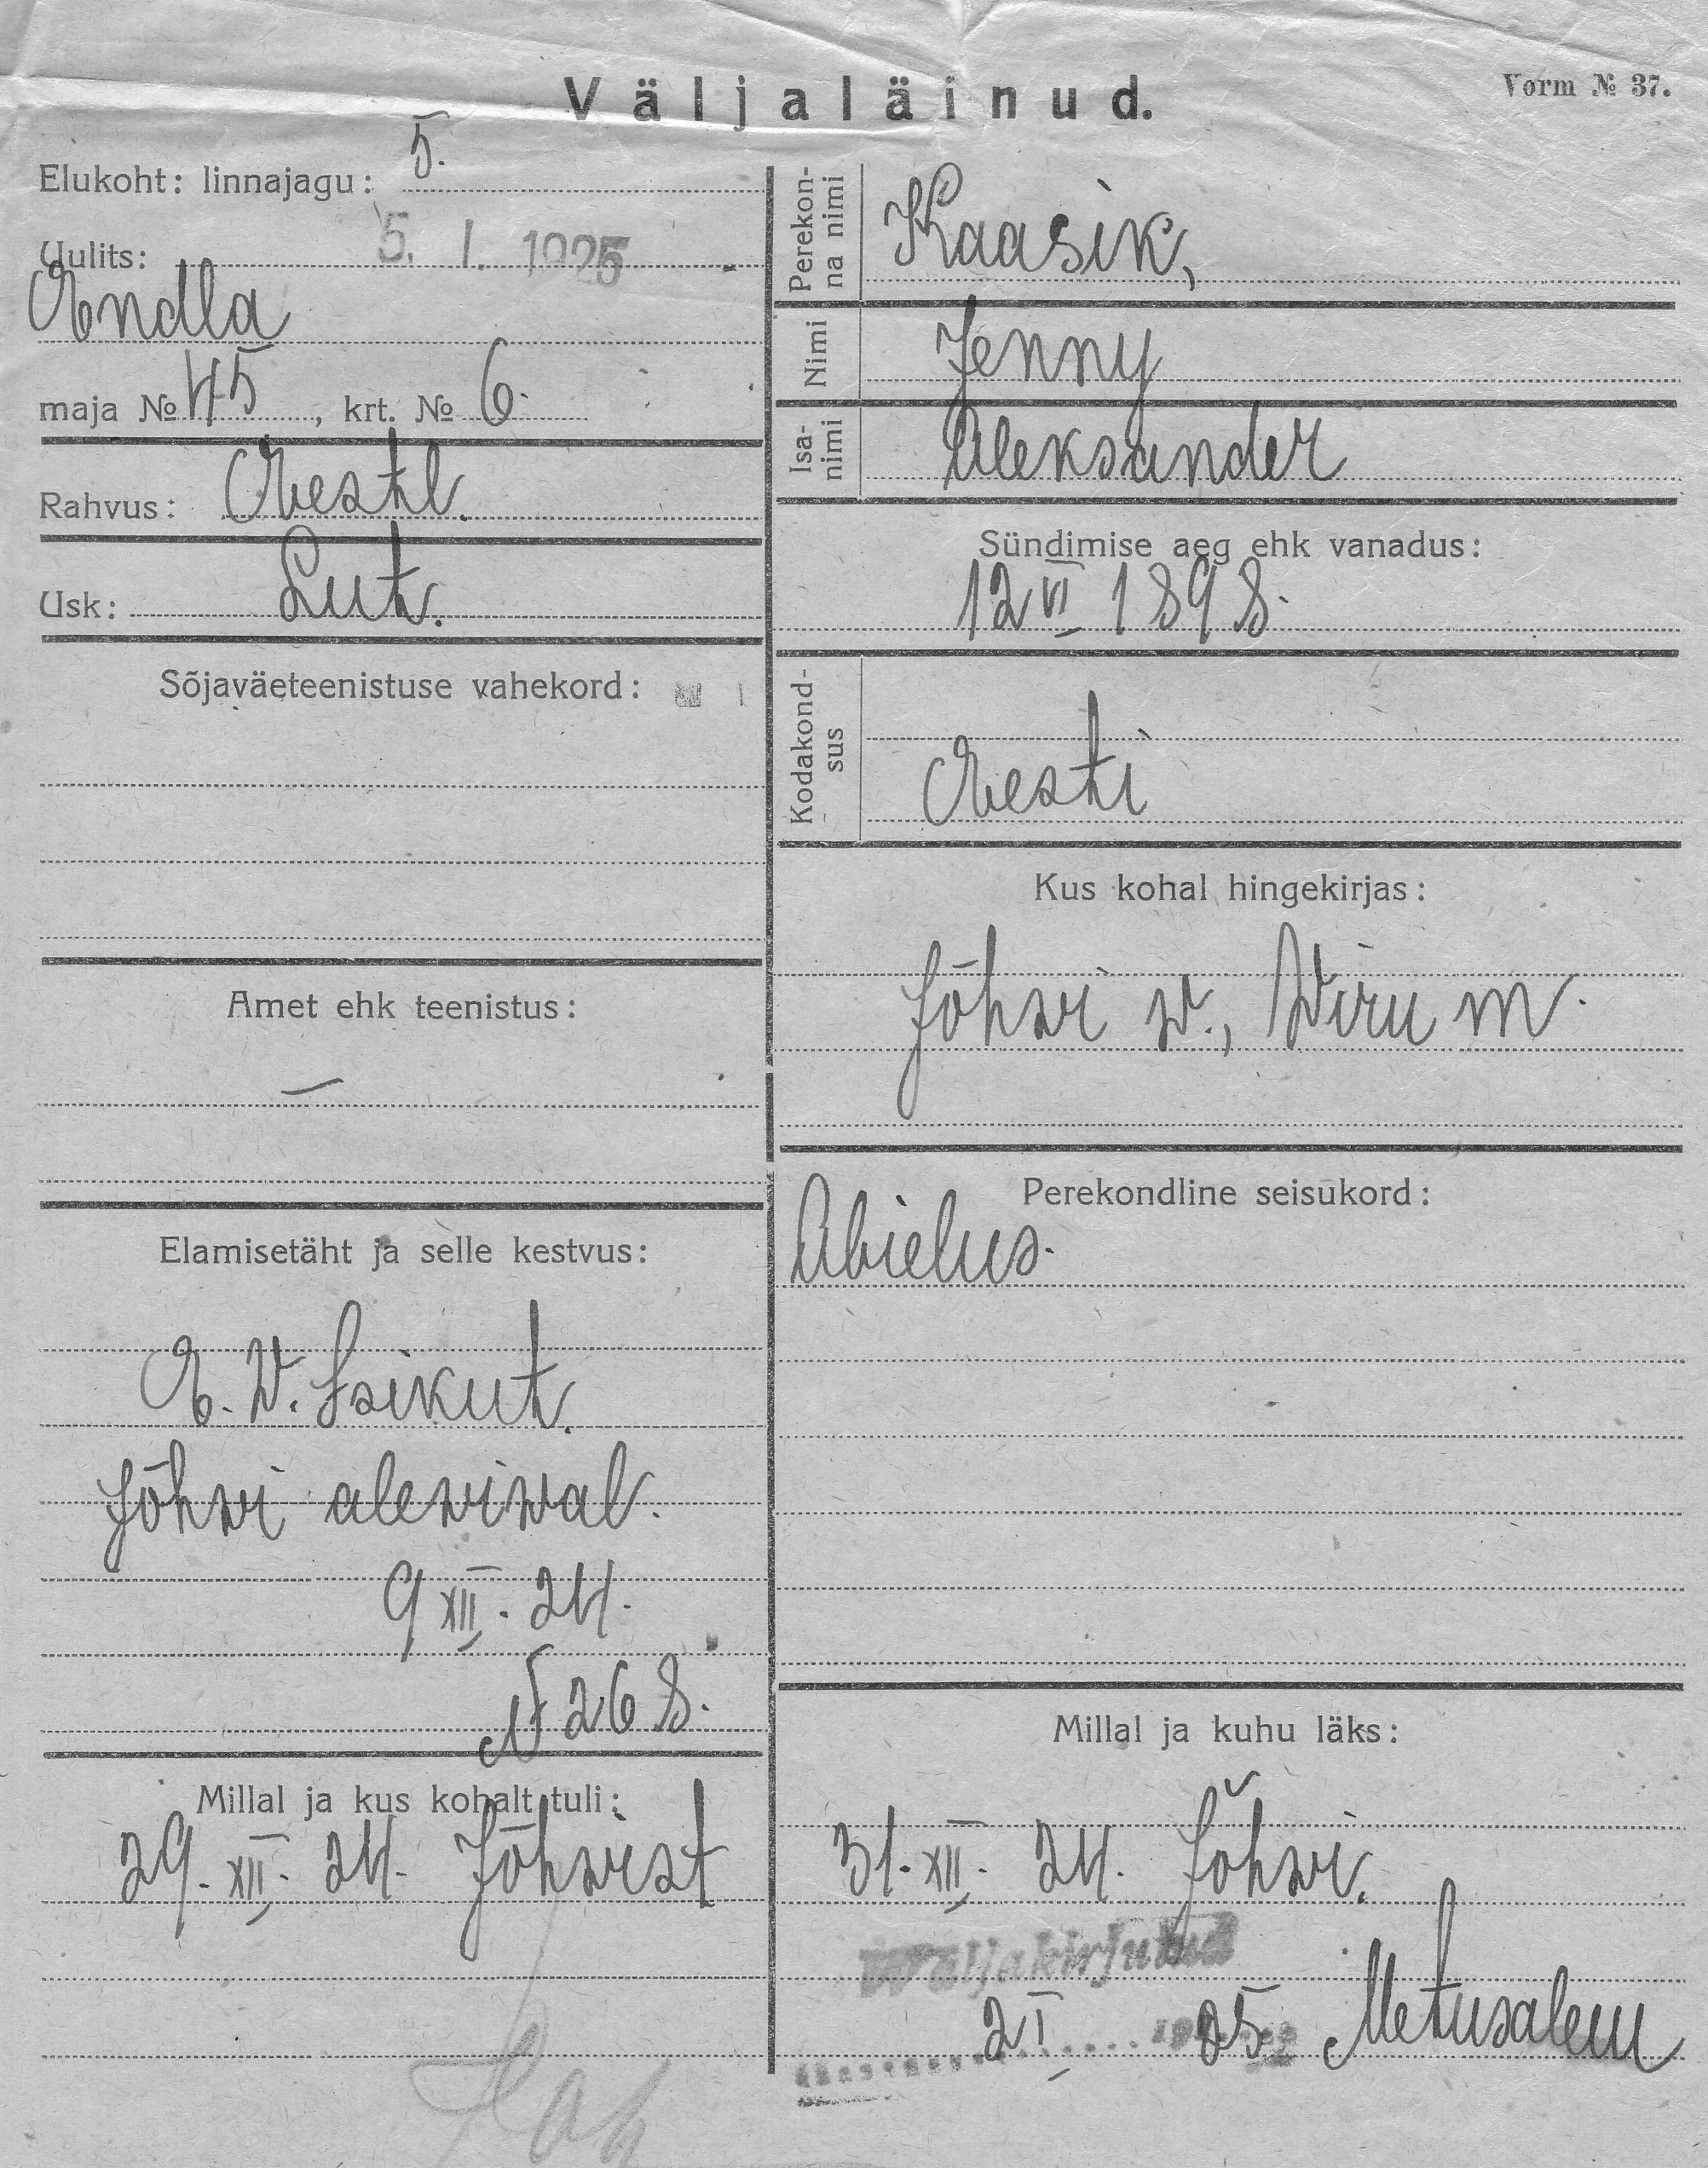 Väljaläinud.
Vorm № 37.
Elukoht: linnajagu: 5.
Uulits: 5. I. 1925
Endla
maja № 45, krt. № 6.
Rahvus: Eestl.
Usk: Lut.
Sõjaväeteenistuse vahekord:
Amet ehk teenistus:
—
Elamisetäht ja selle kestvus:
E. W. Isikut.
Jõhwi alewiwal.
9 XII. 24.
N 268.
Millal ja kus kohalt tuli:
29. XII. 24. Jõhwist
Perekonna nimi
Kaasik,
Nimi
Jenny
Isanimi
Aleksander
Sündimise aeg ehk vanadus:
12 VI 1898.
Kodakondsus
Eesti
Kus kohal hingekirjas:
Jõhwi w., Wiru m.
Perekondline seisukord:
Abielus.
Millal ja kuhu läks:
31. XII. 24. Jõhwi.
Wäljakirjutud
2 I 25 Metusalem